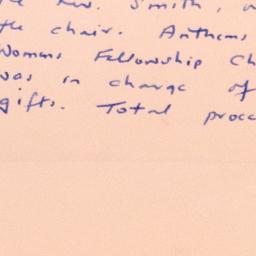 the Rev. Smith,
the chair. Anthems
Womens Fellowship Ch
was in charge of
gifts. Total proce